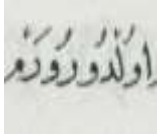 اولدورورم